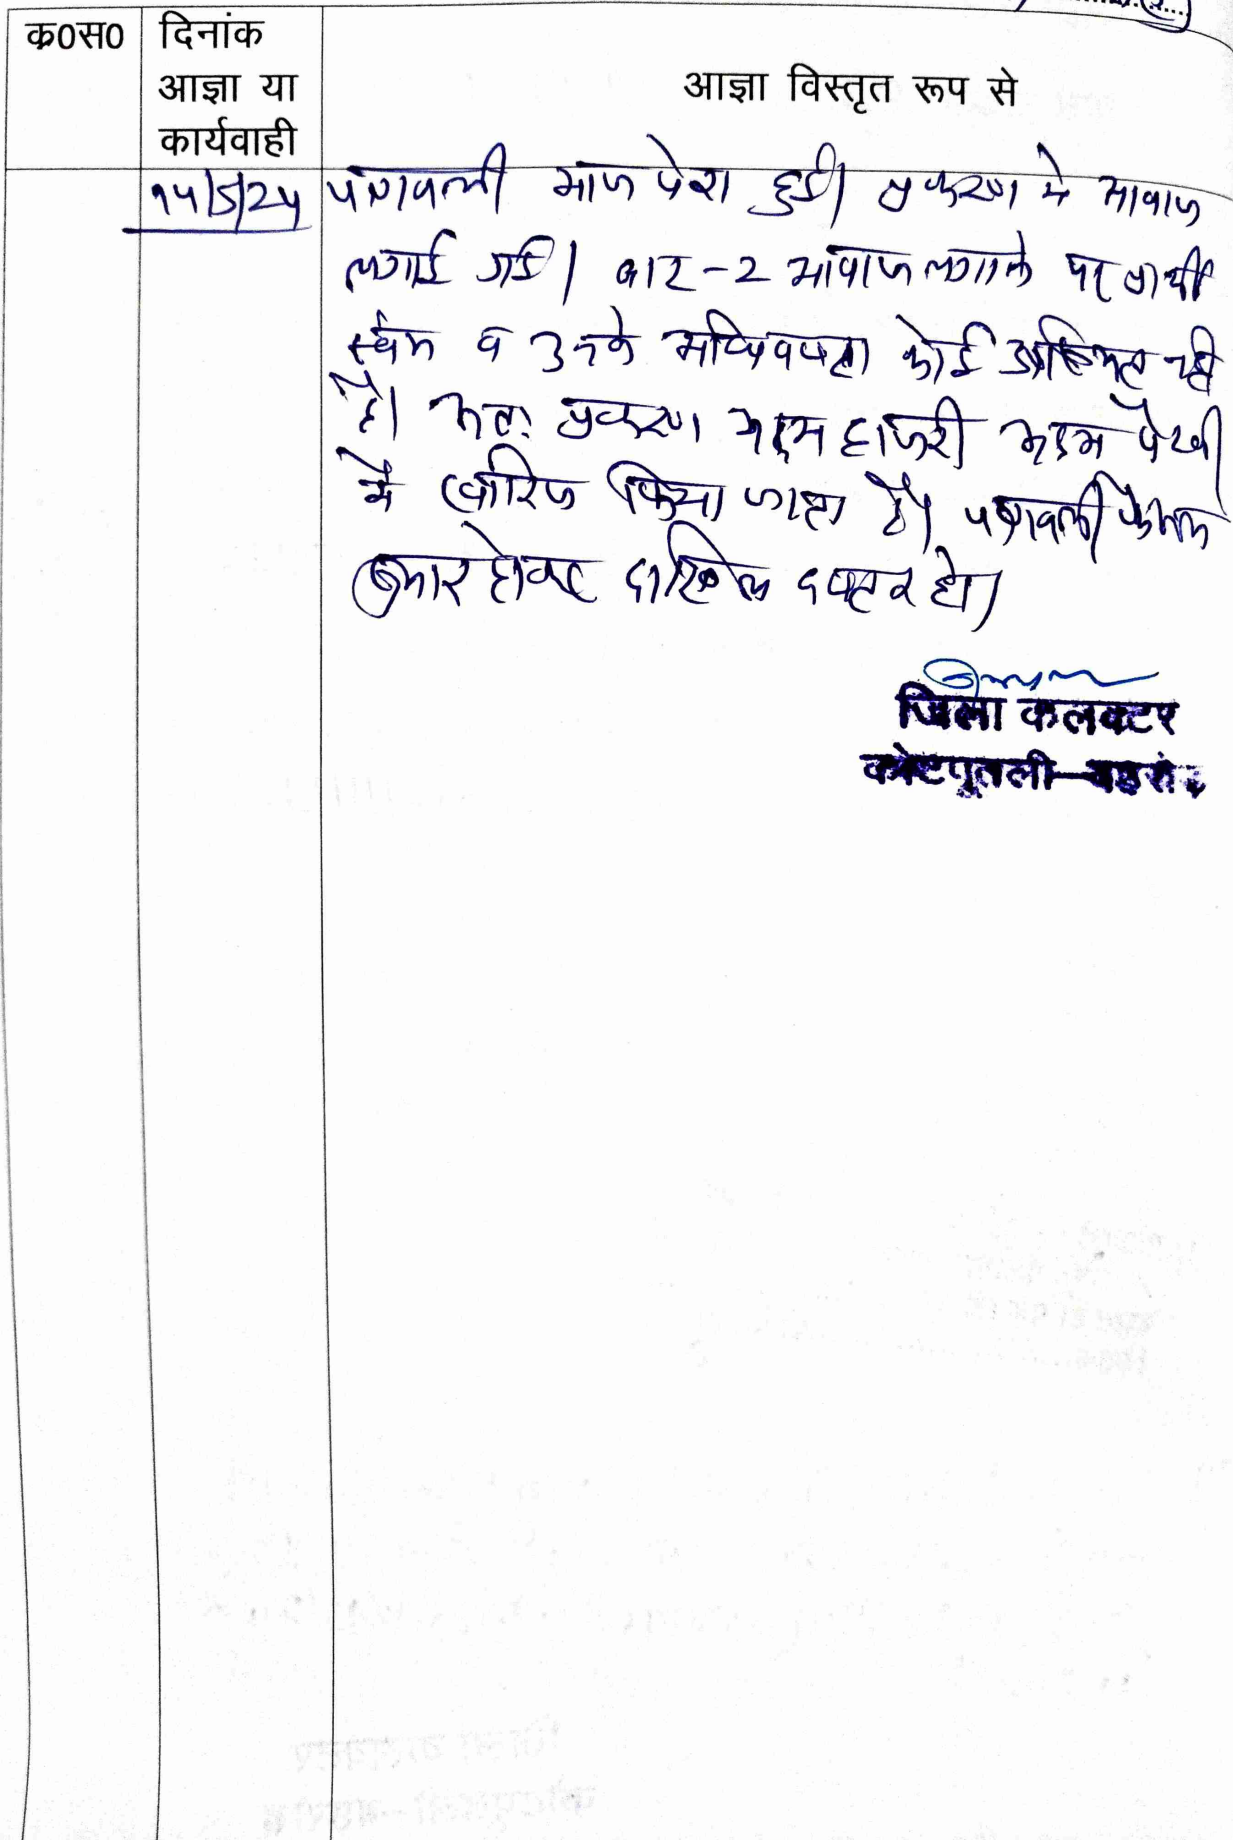 क0स0
दिनांक
आज्ञा या
कार्यवाही
आज्ञा विस्तृत रूप से
१५/5/2५
पत्रावली आज पेश हुई। प्रकरण मे आवाज
लगाई गई। बार-2 आवाज लगाने पर प्रार्थी
स्वंय व उनके अधिवक्ता कोई उपस्थित नही
है। अतः प्रकरण अदम हाजरी अदम पैरवी
मे खारिज किया जाता है। पत्रावली फैसल
शुमार होकर दाखिल दफ्तर हो।
जिला कलक्टर
कोटपूतली-बहरोड